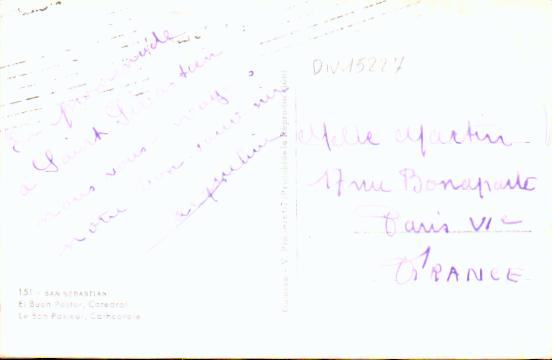 En promenade
à Saint Sébastien
nous vous
notre bon souvenir
DIV.15227
Melle Martin
17 rue Bonaparte
Paris VIe
FRANCE
151 - SAN SEBASTIAN
El Buen Pastor, Catedral
Le Bon Pasteur, Cathédrale
Prohibida la Reproducción